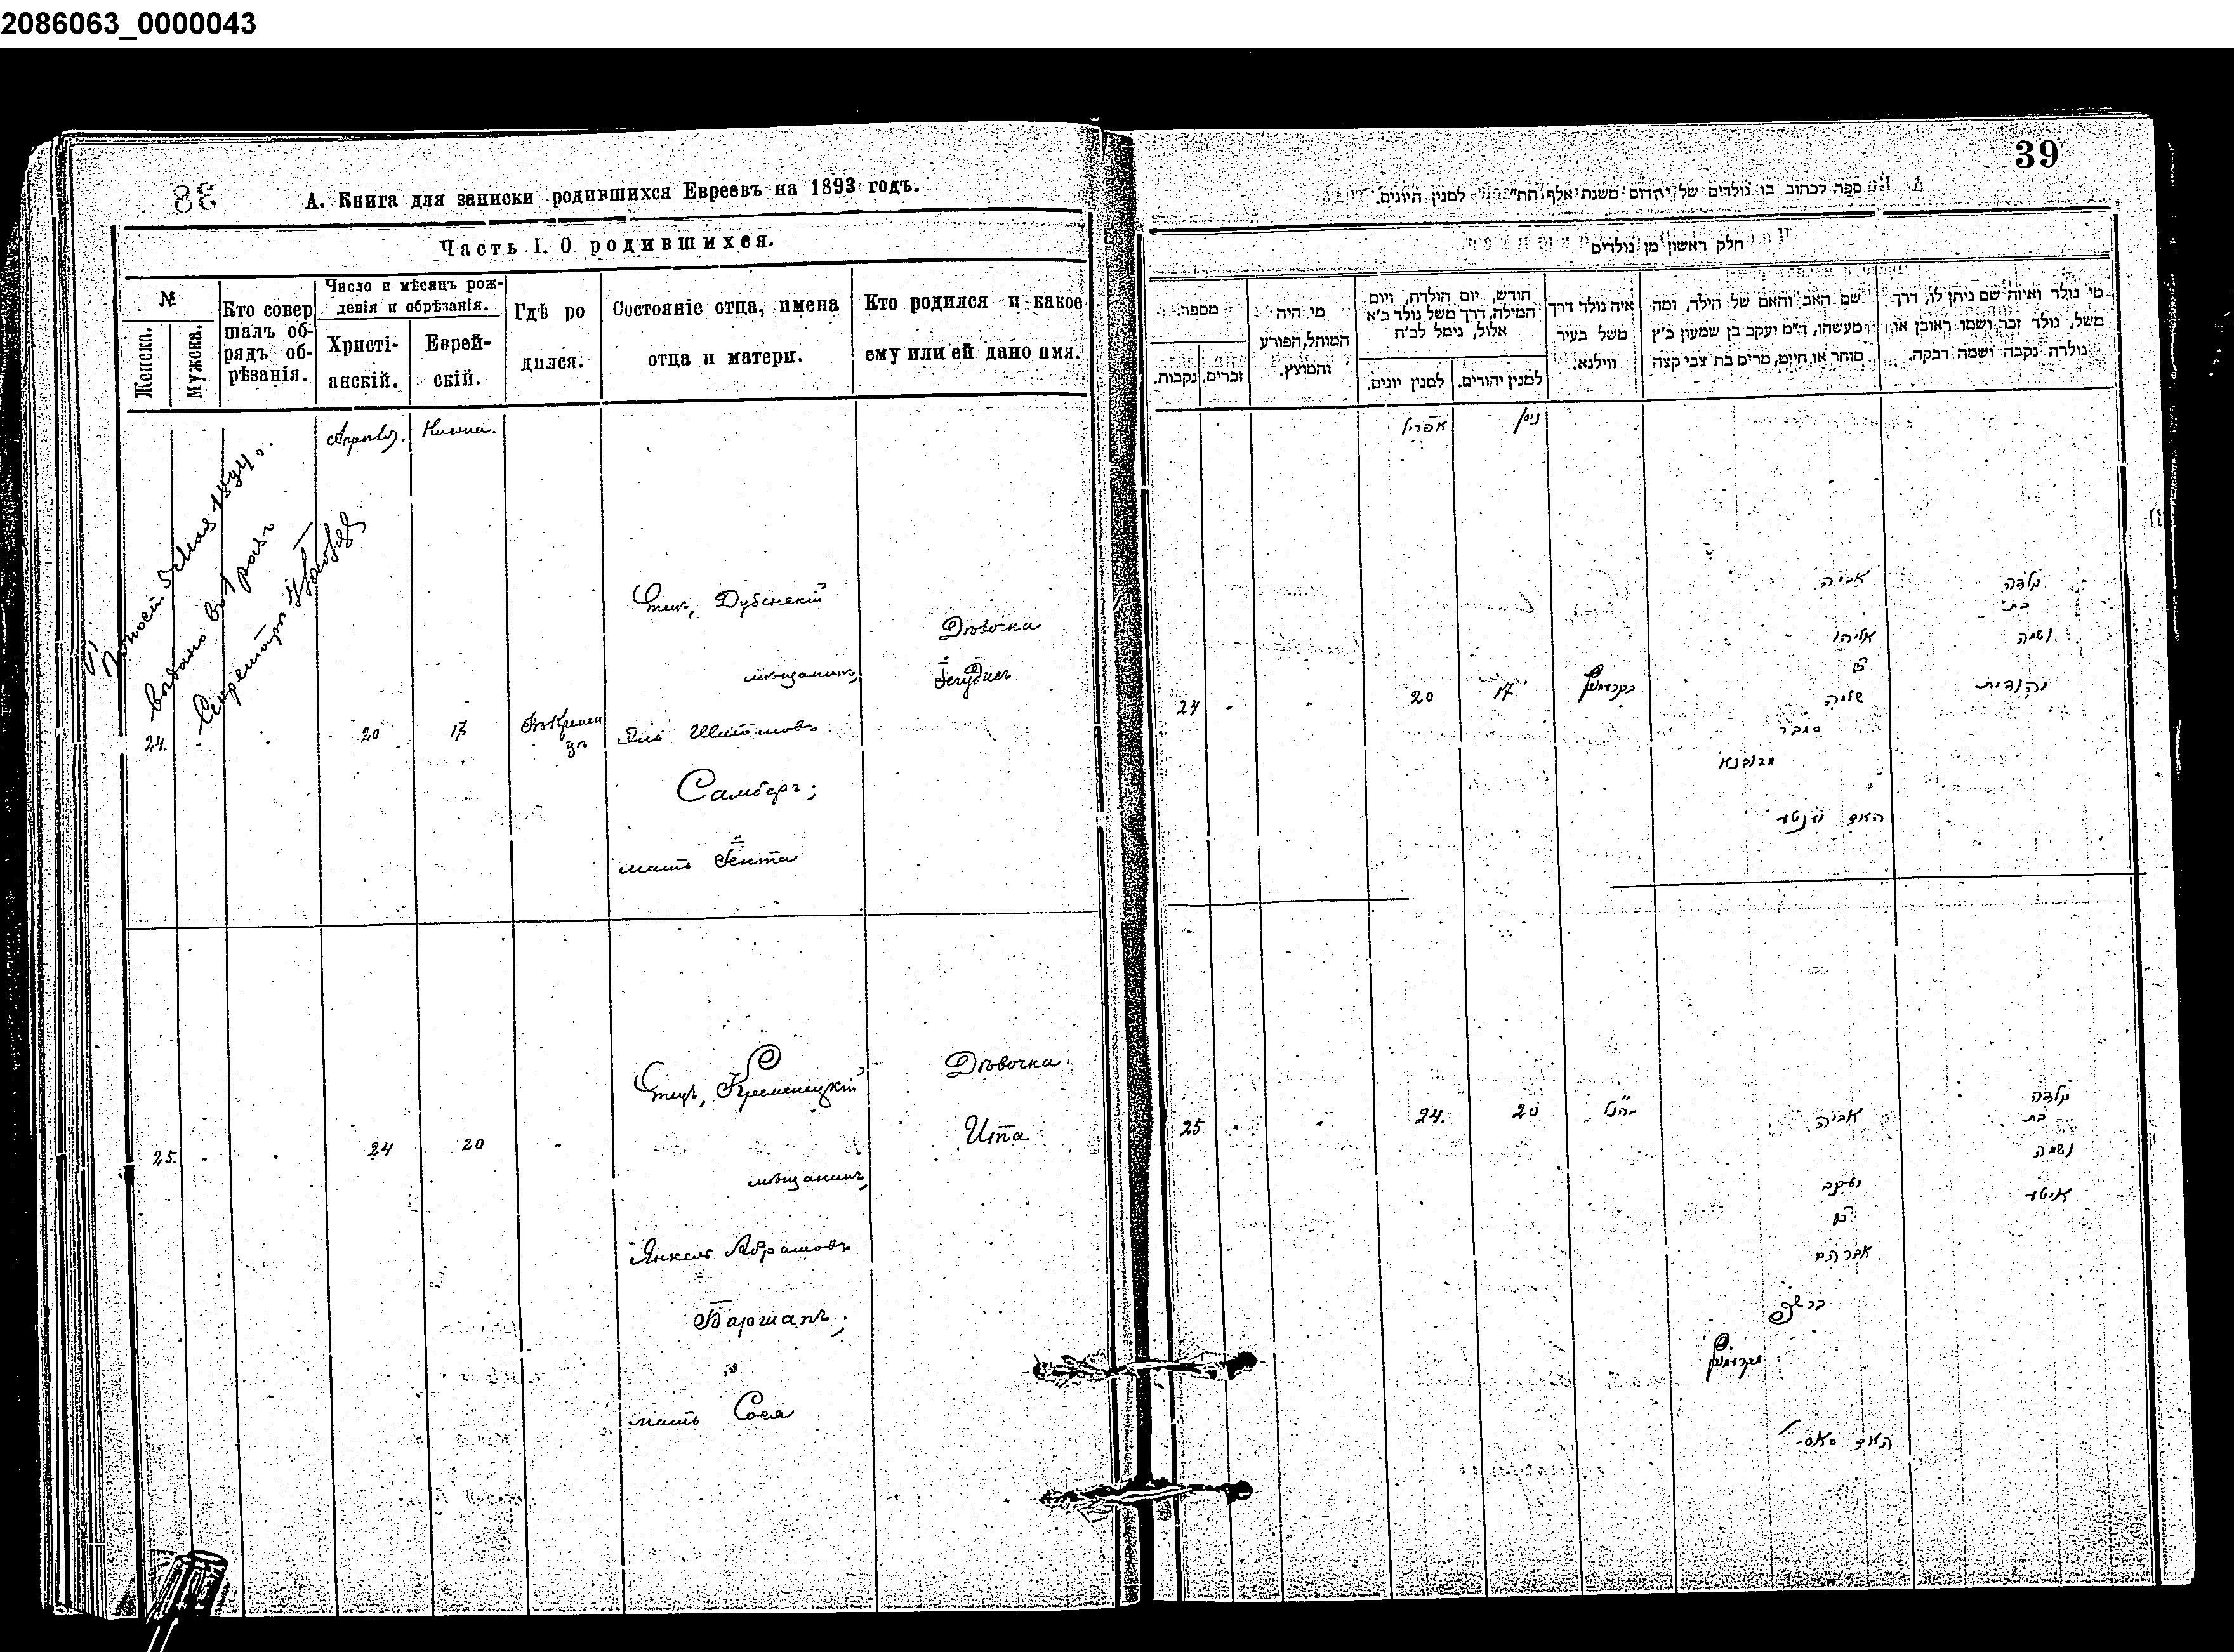 2086063_0000043
38
А. Книга для записки родившихся Евреевъ на 1893 годъ.
Часть I. О родившихся.
№
Женска.
Мужска.
Кто совер
шалъ об-
рядъ об-
рѣзанія.
Число и мѣсяцъ рож-
денія и обрѣзанія.
Христі-
анскій.
Еврей-
скій.
Гдѣ ро
дился.
Состояніе отца, имена
отца и матери.
Кто родился и какое
ему или ей дано имя.
Апрель.
Нисна.
1894 г.
выдано въ 1 разъ
24.
20
17
Въ Кремен
цѣ
Отецъ, Дубенскій
мѣщанинъ,
Шлемовъ
Самберъ;
мать Іента
Дѣвочка
Іегудисъ
25.
24
20
Отецъ, Кременецкій
мѣщанинъ,
Янкель Абрамовъ
Баршапъ;
мать Сося
Дѣвочка
Ита
39
ספר לכתוב בו נולדים של יהודים משנת אלף תת״ למנין היונים.
חלק ראשון מן נולדים
מספר.
נקבות.
זכרים.
מי היה
המוהל, הפורע
והמוצץ.
חודש, יום הולדת, ויום
המילה, דרך משל נולד כ״א
אלול, נימל לכ״ח
למנין יונים.
למנין יהודים.
איה נולד דרך
משל בעיר
ווילנא.
שם האב והאם של הילד, ומה
מעשהו, ד״מ יעקב בן שמעון כ״ץ
סוחר או חייט, מרים בת צבי קצה
מי נולד ואיזה שם ניתן לו, דרך
משל, נולד זכר ושמו ראובן או
נולדה נקבה ושמה רבקה.
אפריל
ניסן
24
20
17
בקרעמניץ
אביה
אליהו
ב״ר
שלמה
סמבר
מדובנא
האם יענטע
נולדה
בת
ושמה
יהודית
25
24.
20
הנ״ל
אביה
יעקב
ב״ר
אברהם
ברשף
מקרעמניץ
האם סאסי
נולדה
בת
ושמה
איטע